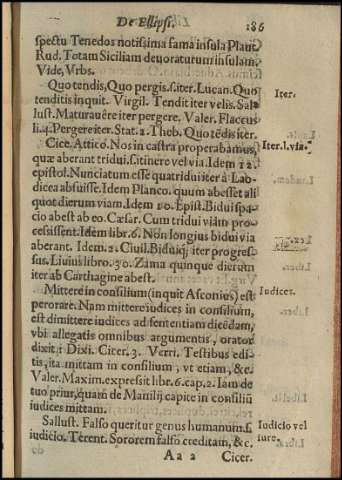 De Ellipsi.
186
spectu Tenedos notissima fama insula Plaut.
Rud. Totam Siciliam deuoraturum insulam.
Vide, Vrbs.
Quo tendis, Quo pergis. s. iter. Lucan. Quo
tenditis inquit. Virgil. Tendit iter velis. Sal-
Iter.
lust. Maturauêre iter pergere. Valer. Flaccus
li. 4. Pergere iter. Stat. 2. Theb. Quo tēdis iter.
Cice. Attico. Nos in castra properabamus,
Iter. l. via.
quæ aberant tridui. s. itinere vel via. Idem 12.
epistol. Nunciatum esse quatridui iter à Lao-
dicea abfuisse. Idem Planco. quum abesset ali
quot dierum viam. Idem 10. Epist. Bidui spa-
cio abest ab eo. Cæsar. Cum tridui viam pro-
cessissent. Idem libr. 6. Non longius bidui via
aberant. Idem. 2. Ciuil. Biduiq; iter progres-
sus. Liuius libro. 30. Zama quinque dierum
iter ab Carthagine abest.
Mittere in consilium (inquit Asconius) est
Iudices.
perorare. Nam mittere iudices in consilium,
est dimittere iudices ad sententiam dicēdam,
vbi allegatis omnibus argumentis, orator
dixit; Dixi. Cicer. 3. Verri. Testibus edi-
tis, ita mittam in consilium, vt etiam, &c.
Valer. Maxim. expresit libr. 6. cap. 2. Iam de
tuo prius, quàm de Manilij capite in consiliū
iudices mittam.
Sallust. Falso queritur genus humanum. s.
Iudicio vel
iudicio. Terent. Sororem falso creditam, &c.
iure.
Aa 2
Cicer.